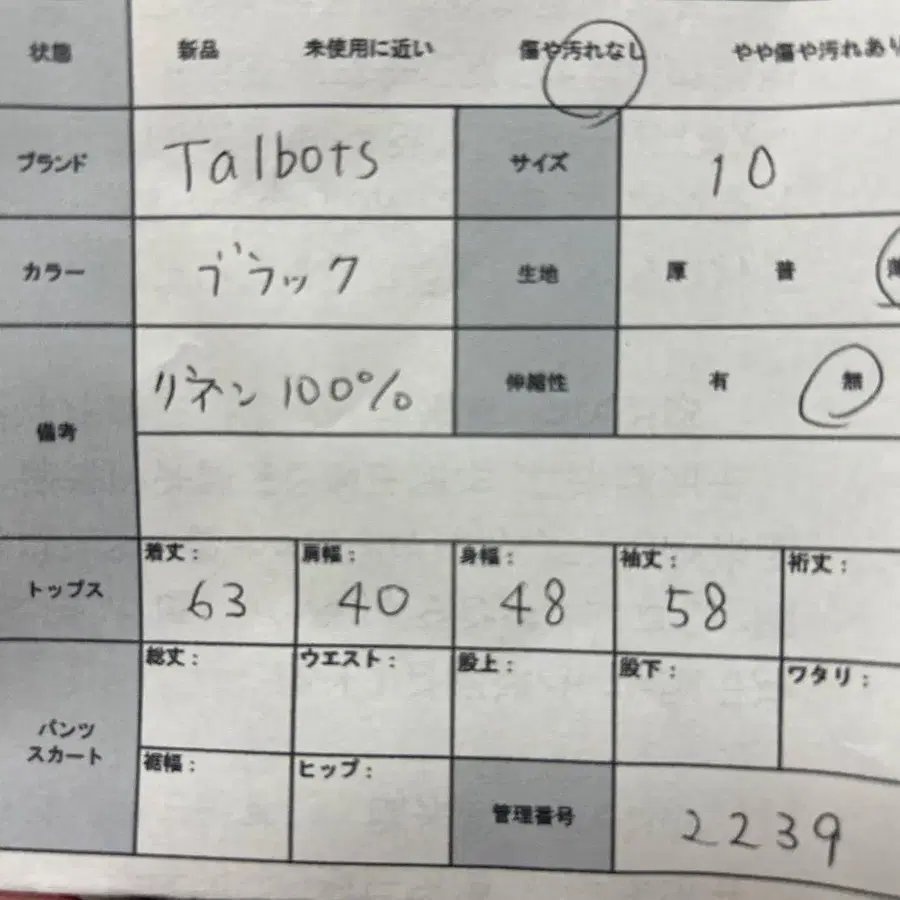 状態 新品 未使用に近い 傷や汚れなし やや傷や汚れあり
ブランド Talbots サイズ 10
カラー ブラック 生地 厚 普 薄
備考 リネン100% 伸縮性 有 無
トップス 着丈: 63 肩幅: 40 身幅: 48 袖丈: 58 裄丈:
パンツ スカート 総丈: ウエスト: 股上: 股下: ワタリ:
裾幅: ヒップ: 管理番号 2239